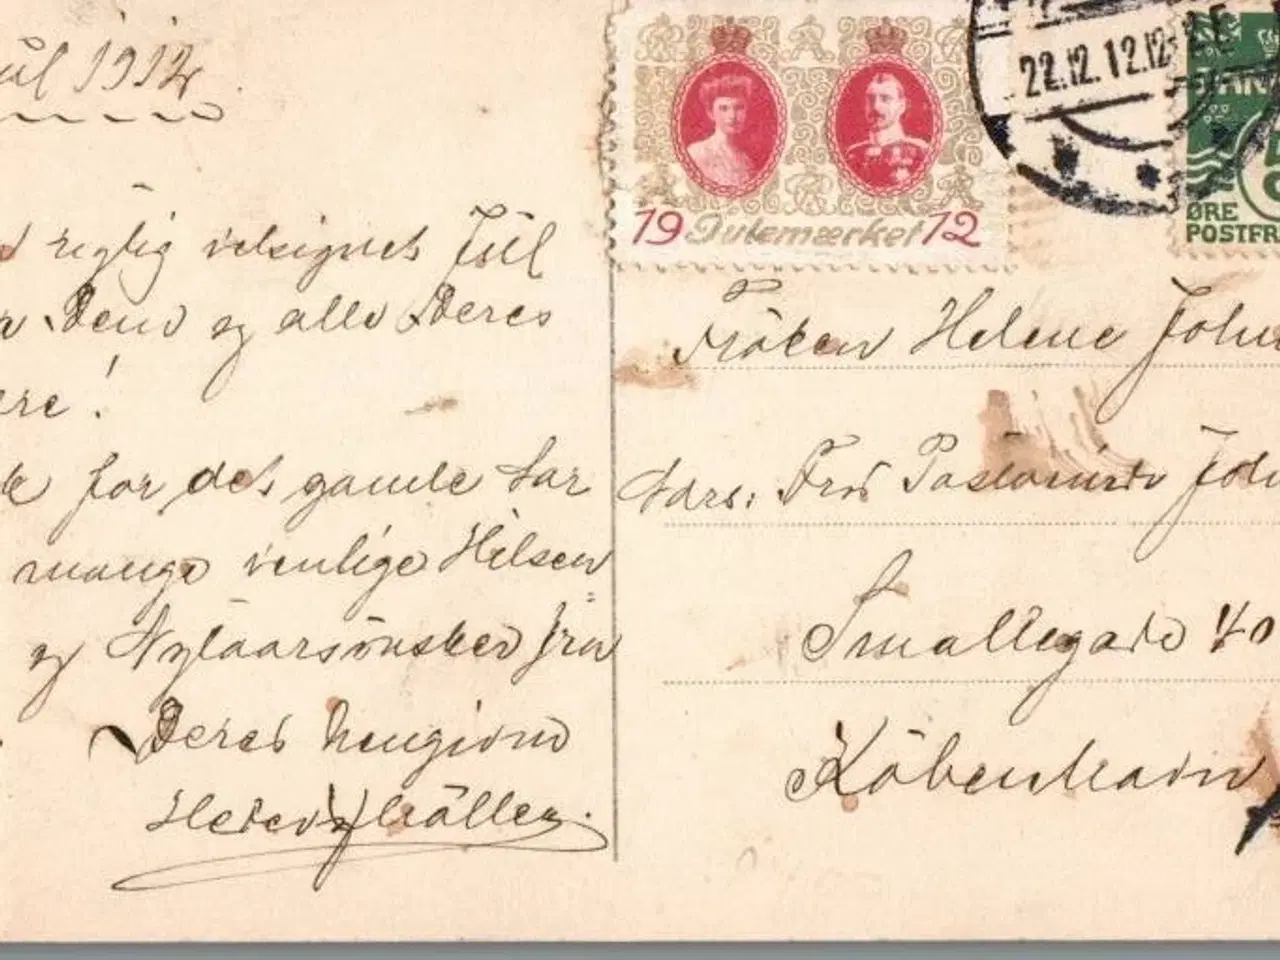 Jul 1912.
rigtig velsignet Jül
Dem og alle Deres
ere!
for det gamle Aar
mange venlige Hilsen
og Nytaarsönsker fra
Deres hengivne
Möller.
19 Julemærket 12
22.12.12.12
ØRE
POSTFR
Fröken Helene Joh
Adrs: Frü Pastorinde Joh
Smallegade 40
Köbenhavn